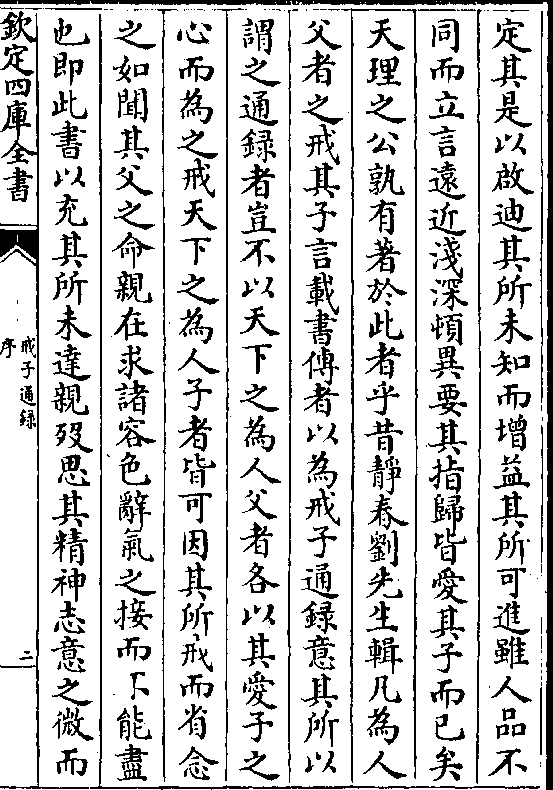 定其是以啟迪其所未知而增益其所可進雖人品不
同而立言遠近淺深頓異要其指歸皆愛其子而已矣
天理之公孰有著於此者乎昔靜春劉先生輯凡為人
父者之戒其子言載書傳者以為戒子通録意其所以
謂之通録者豈不以天下之為人父者各以其愛子之
心而為之戒天下之為人子者皆可因其所戒而省念
之如聞其父之命親在求諸容色辭氣之接而不能盡
也即此書以充其所未達親歿思其精神志意之微而
欽定四庫全書
戒子通録
序
二